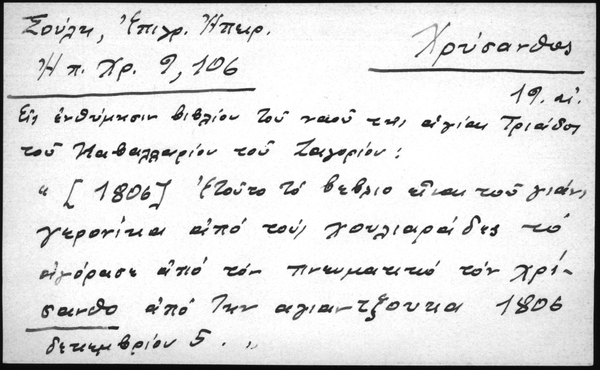 Σούλη, Ἐπιγρ. Ἠπειρ.
Χρύσανθος
Ἠπ. Χρ. 9, 106
19. αἰ.
Εἰς ἐνθύμησιν βιβλίου τοῦ ναοῦ τῆς ἁγίας Τριάδος
τοῦ Καβαλλαρίου τοῦ Ζαγορίου:
" [1806] Ἐτοῦτο τὸ βεβλιο εἶναι τοῦ γιάνι
γερονίκα ἀπό τούς χουλιαράδες τό
ἀγόρασε ἀπό τόν πνευματικό τόν χρί-
σανθο ἀπό τήν αγιαντζουκα 1806
δεκεμβρίου 5. "